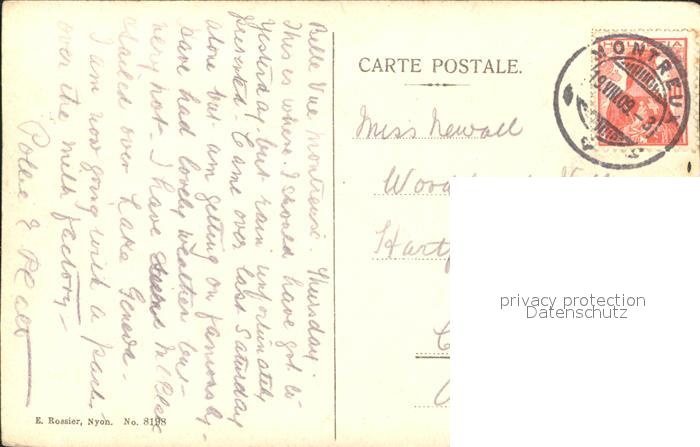 Belle Vue Montreux. Thursday.
This is where I should have got to
Yesterday but rain unfortunately
prevented. Came over last Saturday
alone but am getting on famously -
have had lovely weather but
very hot - I have
sailed over Lake Geneva.
I am now going with a party
over the milk factory -
CARTE POSTALE.
Miss Newall
HELVETIA
MONTREUX
E. Rossier, Nyon. No. 8198
privacy protection
Datenschutz